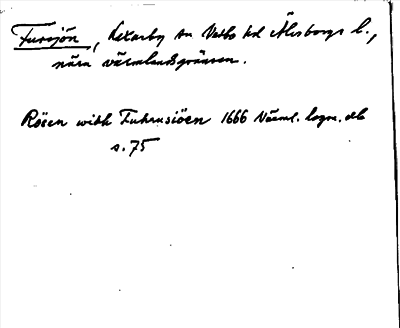 Fursjön, Laxarby sn Vedbo hd Älvsborgs l.,
nära värmlandsgränsen.
Rösen widh Fuhrusiöen 1666 Värml. lagm. db
s. 75